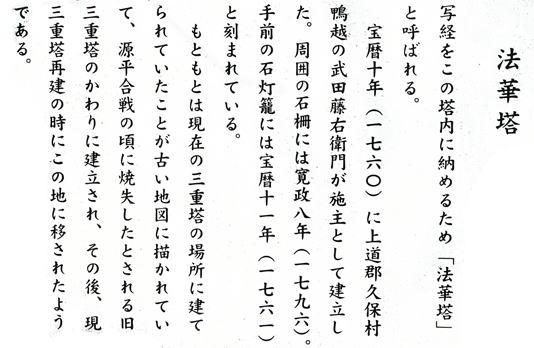 法華塔
写経をこの塔内に納めるため「法華塔」
と呼ばれる。
宝暦十年（一七六〇）に上道郡久保村
鴨越の武田藤右衛門が施主として建立し
た。周囲の石柵には寛政八年（一七九六）。
手前の石灯籠には宝暦十一年（一七六一）
と刻まれている。
もともとは現在の三重塔の場所に建て
られていたことが古い地図に描かれてい
て、源平合戦の頃に焼失したとされる旧
三重塔のかわりに建立され、その後、現
三重塔再建の時にこの地に移されたよう
である。